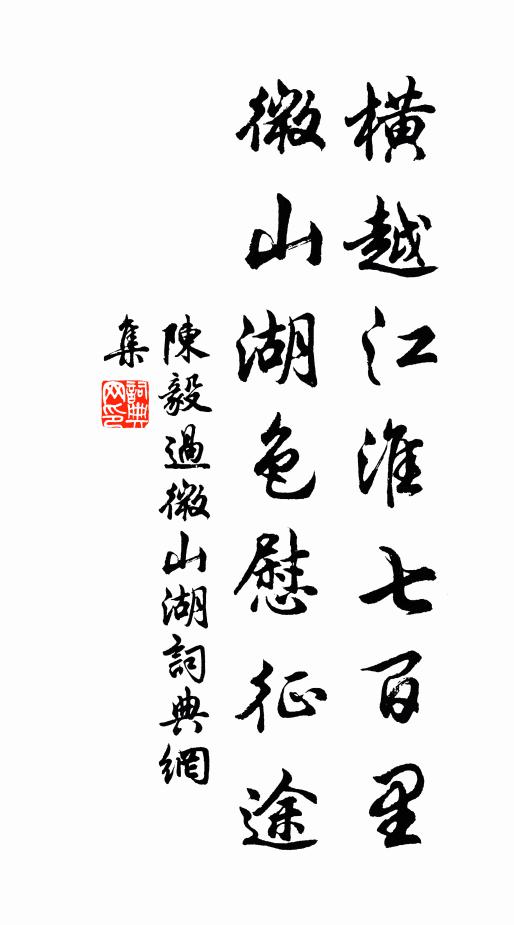 橫越江淮七百里
微山湖色慰征途
陳毅過微山湖詞典網
集
詞典
网印